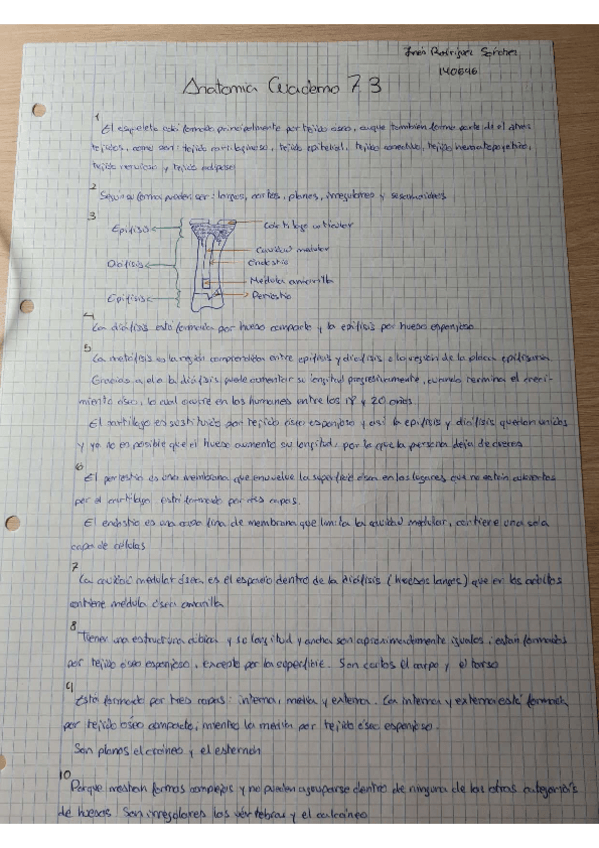 Inés Rodríguez Sánchez
140646
Anatomía Cuaderno 7.3
1
El esqueleto está formado principalmente por tejido óseo, aunque también forma parte de él otros
tejidos, como son: tejido cartilaginoso, tejido epitelial, tejido conectivo, tejido hematopoyético,
tejido nervioso y tejido adiposo
2
Según su forma pueden ser: largos, cortos, planos, irregulares y sesamoideos
3
Epífisis
Diáfisis
Epífisis
Cartílago articular
Cavidad medular
Endostio
Médula amarilla
Periostio
4
La diáfisis está formada por hueso compacto y la epífisis por hueso esponjoso
5
La metáfisis es la región comprendida entre epífisis y diáfisis o la región de la placa epifisaria
Gracias a ella la diáfisis puede aumentar su longitud progresivamente, cuando termina el creci-
miento óseo, lo cual ocurre en los humanos entre los 18 y 20 años.
El cartílago es sustituido por tejido óseo esponjoso y así la epífisis y diáfisis quedan unidas
y ya no es posible que el hueso aumente su longitud, por lo que la persona deja de crecer.
6
El periostio es una membrana que envuelve la superficie ósea en los lugares que no están cubiertos
por el cartílago. está formado por dos capas.
El endostio es una capa fina de membrana que limita la cavidad medular, contiene una sola
capa de células
7
La cavidad medular ósea es el espacio dentro de la diáfisis (huesos largos) que en los adultos
contiene médula ósea amarilla
8
Tienen una estructura cúbica y su longitud y ancho son aproximadamente iguales. están formados
por tejido óseo esponjoso, excepto por la superficie. Son cortos el carpo y el tarso
9
Está formado por tres capas: interna, media y externa. La interna y externa está formada
por tejido óseo compacto, mientras la media por tejido óseo esponjoso.
Son planos el cráneo y el esternón
10
Porque muestran formas complejas y no pueden agruparse dentro de ninguna de las otras categorías
de huesos. Son irregulares las vértebras y el calcáneo